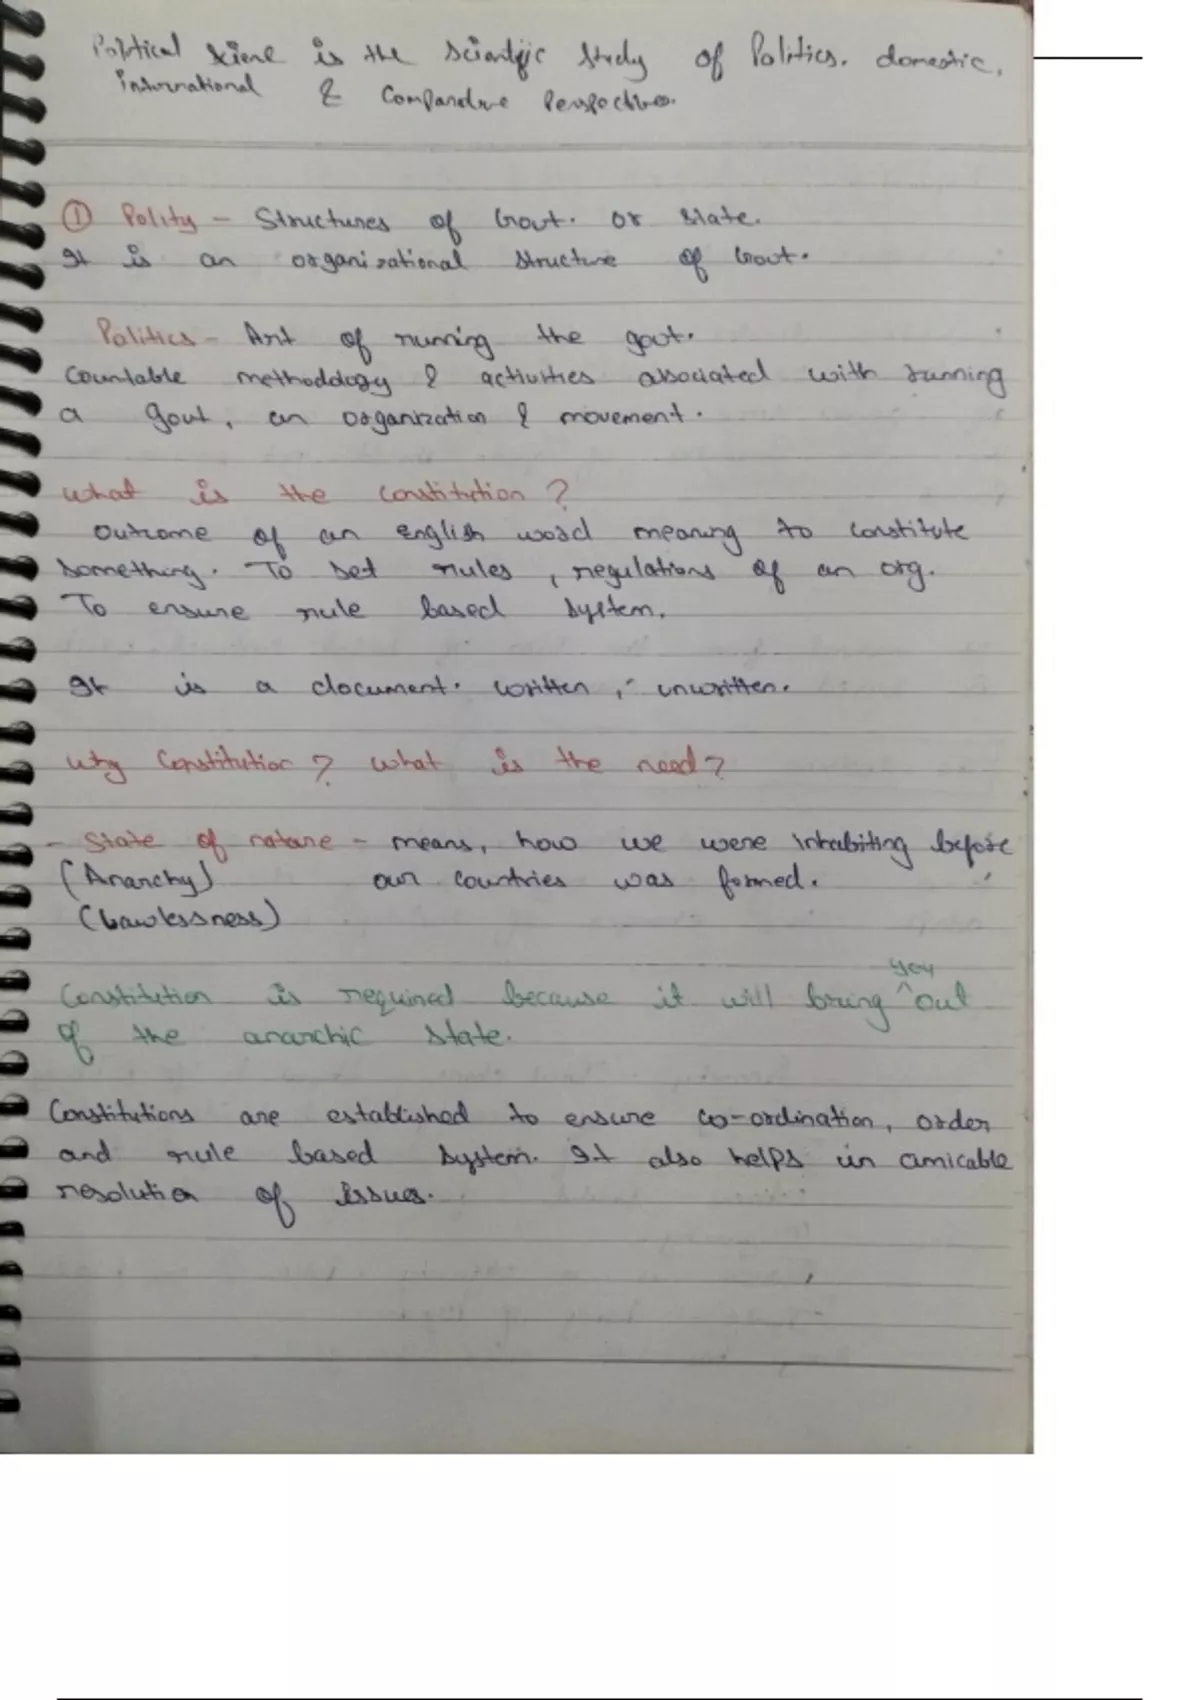 Political Science is the Scientific Study of Politics. domestic,
international & Comparative Perspectives.
① Polity - Structures of Govt. or state.
It is an organizational structure of Govt.
Politics - Art of running the govt.
Countable methodology & activities associated with running
a govt, an organization & movement.
What is the constitution?
Outcome of an english word meaning to constitute
something. To set rules, regulations of an org.
To ensure rule based system.
It is a document. written, unwritten.
Why Constitution? What is the need?
- State of nature - means, how we were inhabiting before
(Anarchy) our countries was formed.
(Lawlessness)
you
Constitution is required because it will bring ^ out
of the anarchic state.
Constitutions are established to ensure co-ordination, order
and rule based system. It also helps in amicable
resolution of issues.